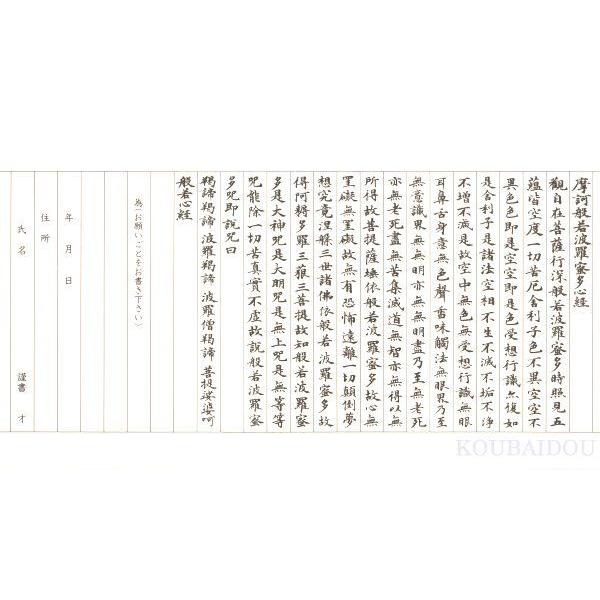 摩訶般若波羅蜜多心経
觀自在菩薩行深般若波羅蜜多時照見五
蘊皆空度一切苦厄舎利子色不異空空不
異色色即是空空即是色受想行識亦復如
是舎利子是諸法空相不生不滅不垢不浄
不増不減是故空中無色無受想行識無眼
耳鼻舌身意無色聲香味觸法無眼界乃至
無意識界無無明亦無無明盡乃至無老死
亦無老死盡無苦集滅道無智亦無得以無
所得故菩提薩埵依般若波羅蜜多故心無
罣礙無罣礙故無有恐怖遠離一切顛倒夢
想究竟涅槃三世諸佛依般若波羅蜜多故
得阿耨多羅三藐三菩提故知般若波羅蜜
多是大神咒是大明咒是無上咒是無等等
咒能除一切苦真實不虚故説般若波羅蜜
多咒即説咒曰
羯諦羯諦 波羅羯諦 波羅僧羯諦 菩提娑婆呵
般若心経
為(お願いごとをお書き下さい)
年 月 日
住所
氏名 謹書 才
KOUBAIDOU